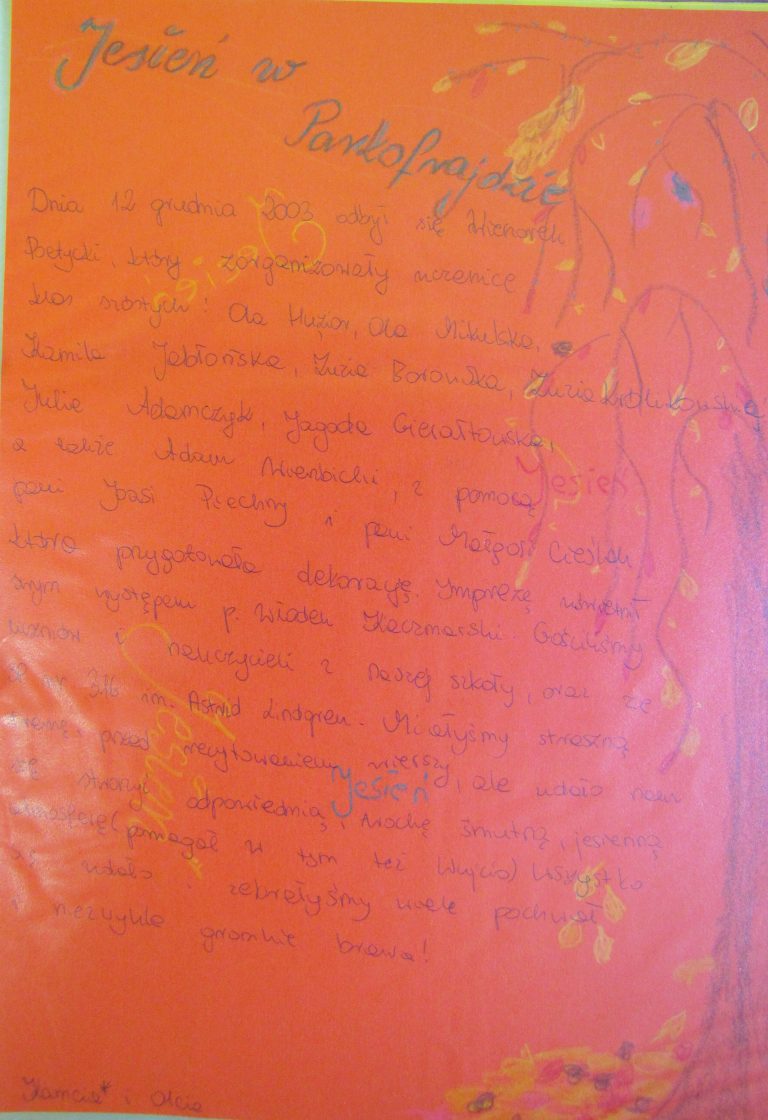 Jesień w
Pankofrajdzie
Dnia 12 grudnia 2003 odbył się Wieczorek
Poetycki, który zorganizowały uczenice
klas szóstych: Ola Huzor, Ola Mikulska,
Kamila Jabłońska, Zuzia Borowska, Zuzia Królikowska
Julia Adamczyk, Jagoda Gierałtowska,
a także Adam Wierzbicki, z pomocą
pani Joasi Piechny i pani Małgosi Cieślak
która przygotowała dekorację. Imprezę uświetnił
swym występem p. Wiadek Kaczmarski. Gościliśmy
uczniów i nauczycieli z naszej szkoły, oraz ze
SP nr 316 im. Astrid Lindgren. Miałyśmy straszną
tremę, przed recytowaniem wierszy, ale udało nam
się stworzyć odpowiednią, trochę smutną, jesienną
atmosferę (pomagał w tym też Wujcio) Wszystko
się udało i zebrałyśmy wiele pochwał
i niezwykle gromkie brawa!
Jesień
Jesień
Jesień
Jesień
Kamcia* i Olcia